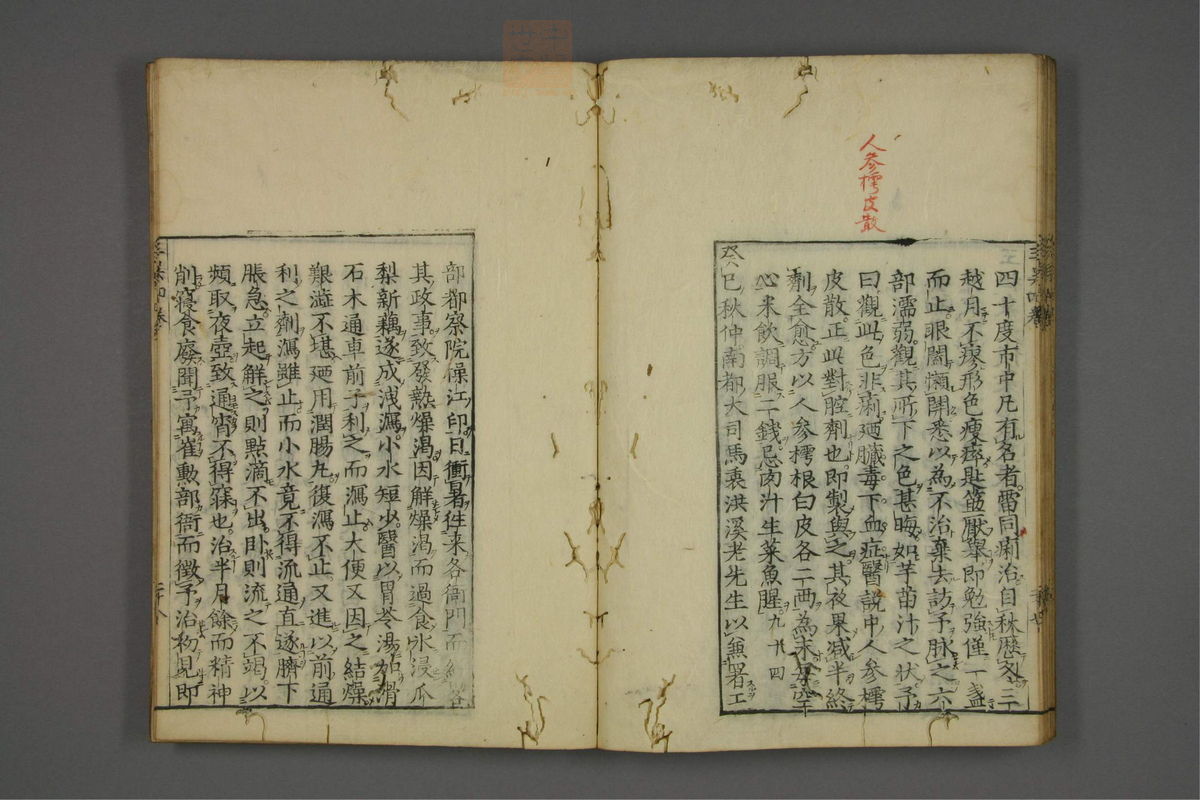 人參樗皮散
四十度市中凡有名者雷同痢治自秋歷冬三
越月不瘳形色瘦瘁匙筯厭舉即勉強僅一盞
而止眼闔懶開悉以為不治棄去訪予脉之六
部濡弱觀其所下之色甚晦如芋苗汁之狀予
曰觀此色非痢廼臟毒下血症醫說中人參樗
皮散正此對腔劑也即製與之其夜果减半終
劑全愈方以人参樗根白皮各二兩為末每空
心米飲調服二錢忌肉汁生菜魚腥
癸巳秋仲南都大司馬裏洪溪老先生以兼署工
部都察院操江印日衝暑往来各衙門而
其政事致發熱燥渴因解燥渴而過食氷浸瓜
梨新藕遂成洩瀉小水短少醫以胃苓湯加滑
石木通車前子利之而瀉止大便又因之結燥
艱澁不堪廼用潤腸丸復瀉不止又進以前通
利之劑瀉雖止而小水竟不得流通直逐臍下
脹急立起解之則點滴不出卧則流之不竭以
頻取夜壺致通宵不得寐也治半月餘而精神
削寢食廢聞予寓崔勳部衙而徴予治初見即